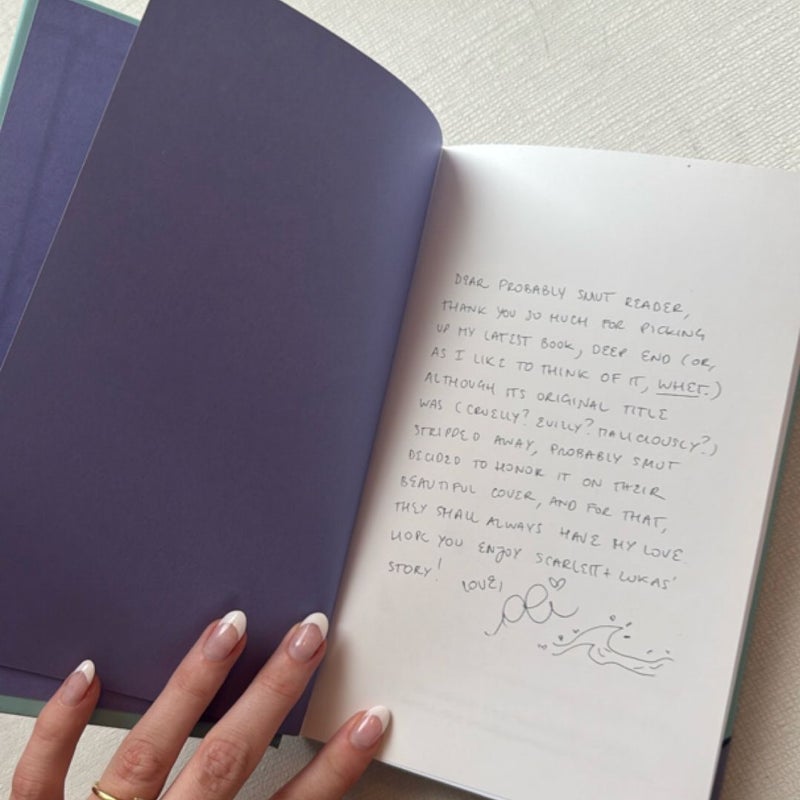 DEAR PROBABLY SMUT READER,
THANK YOU SO MUCH FOR PICKING
UP MY LATEST BOOK, DEEP END (OR,
AS I LIKE TO THINK OF IT, WHET.)
ALTHOUGH ITS ORIGINAL TITLE
WAS (CRUELLY? EVILLY? MALICIOUSLY?)
STRIPPED AWAY, PROBABLY SMUT
DECIDED TO HONOR IT ON THEIR
BEAUTIFUL COVER, AND FOR THAT,
THEY SHALL ALWAYS HAVE MY LOVE.
HOPE YOU ENJOY SCARLETT + LUKAS'
STORY! LOVE,
Ali